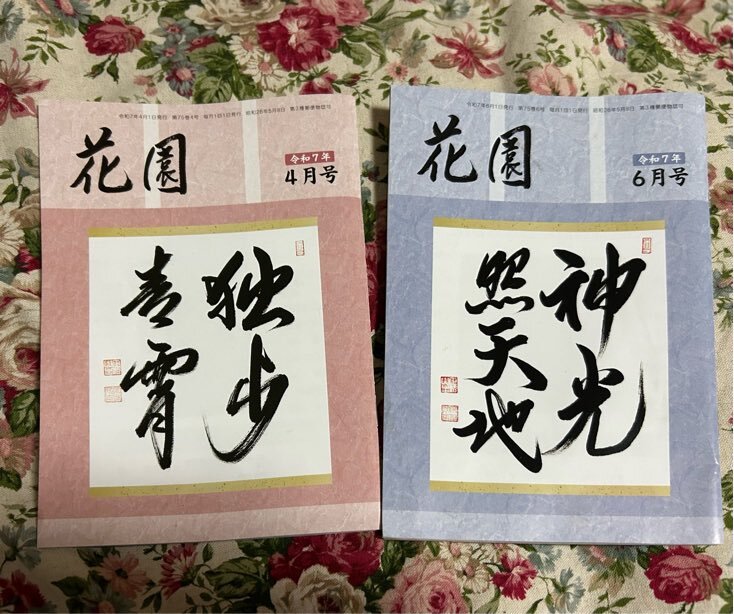 令和7年4月1日発行 第75巻4号 毎月1回1日発行 昭和26年5月8日 第3種郵便物認可
花園
令和7年
4月号
独歩
青霄
令和7年6月1日発行 第75巻6号 毎月1回1日発行 昭和26年5月8日 第3種郵便物認可
花園
令和7年
6月号
神光
照天地